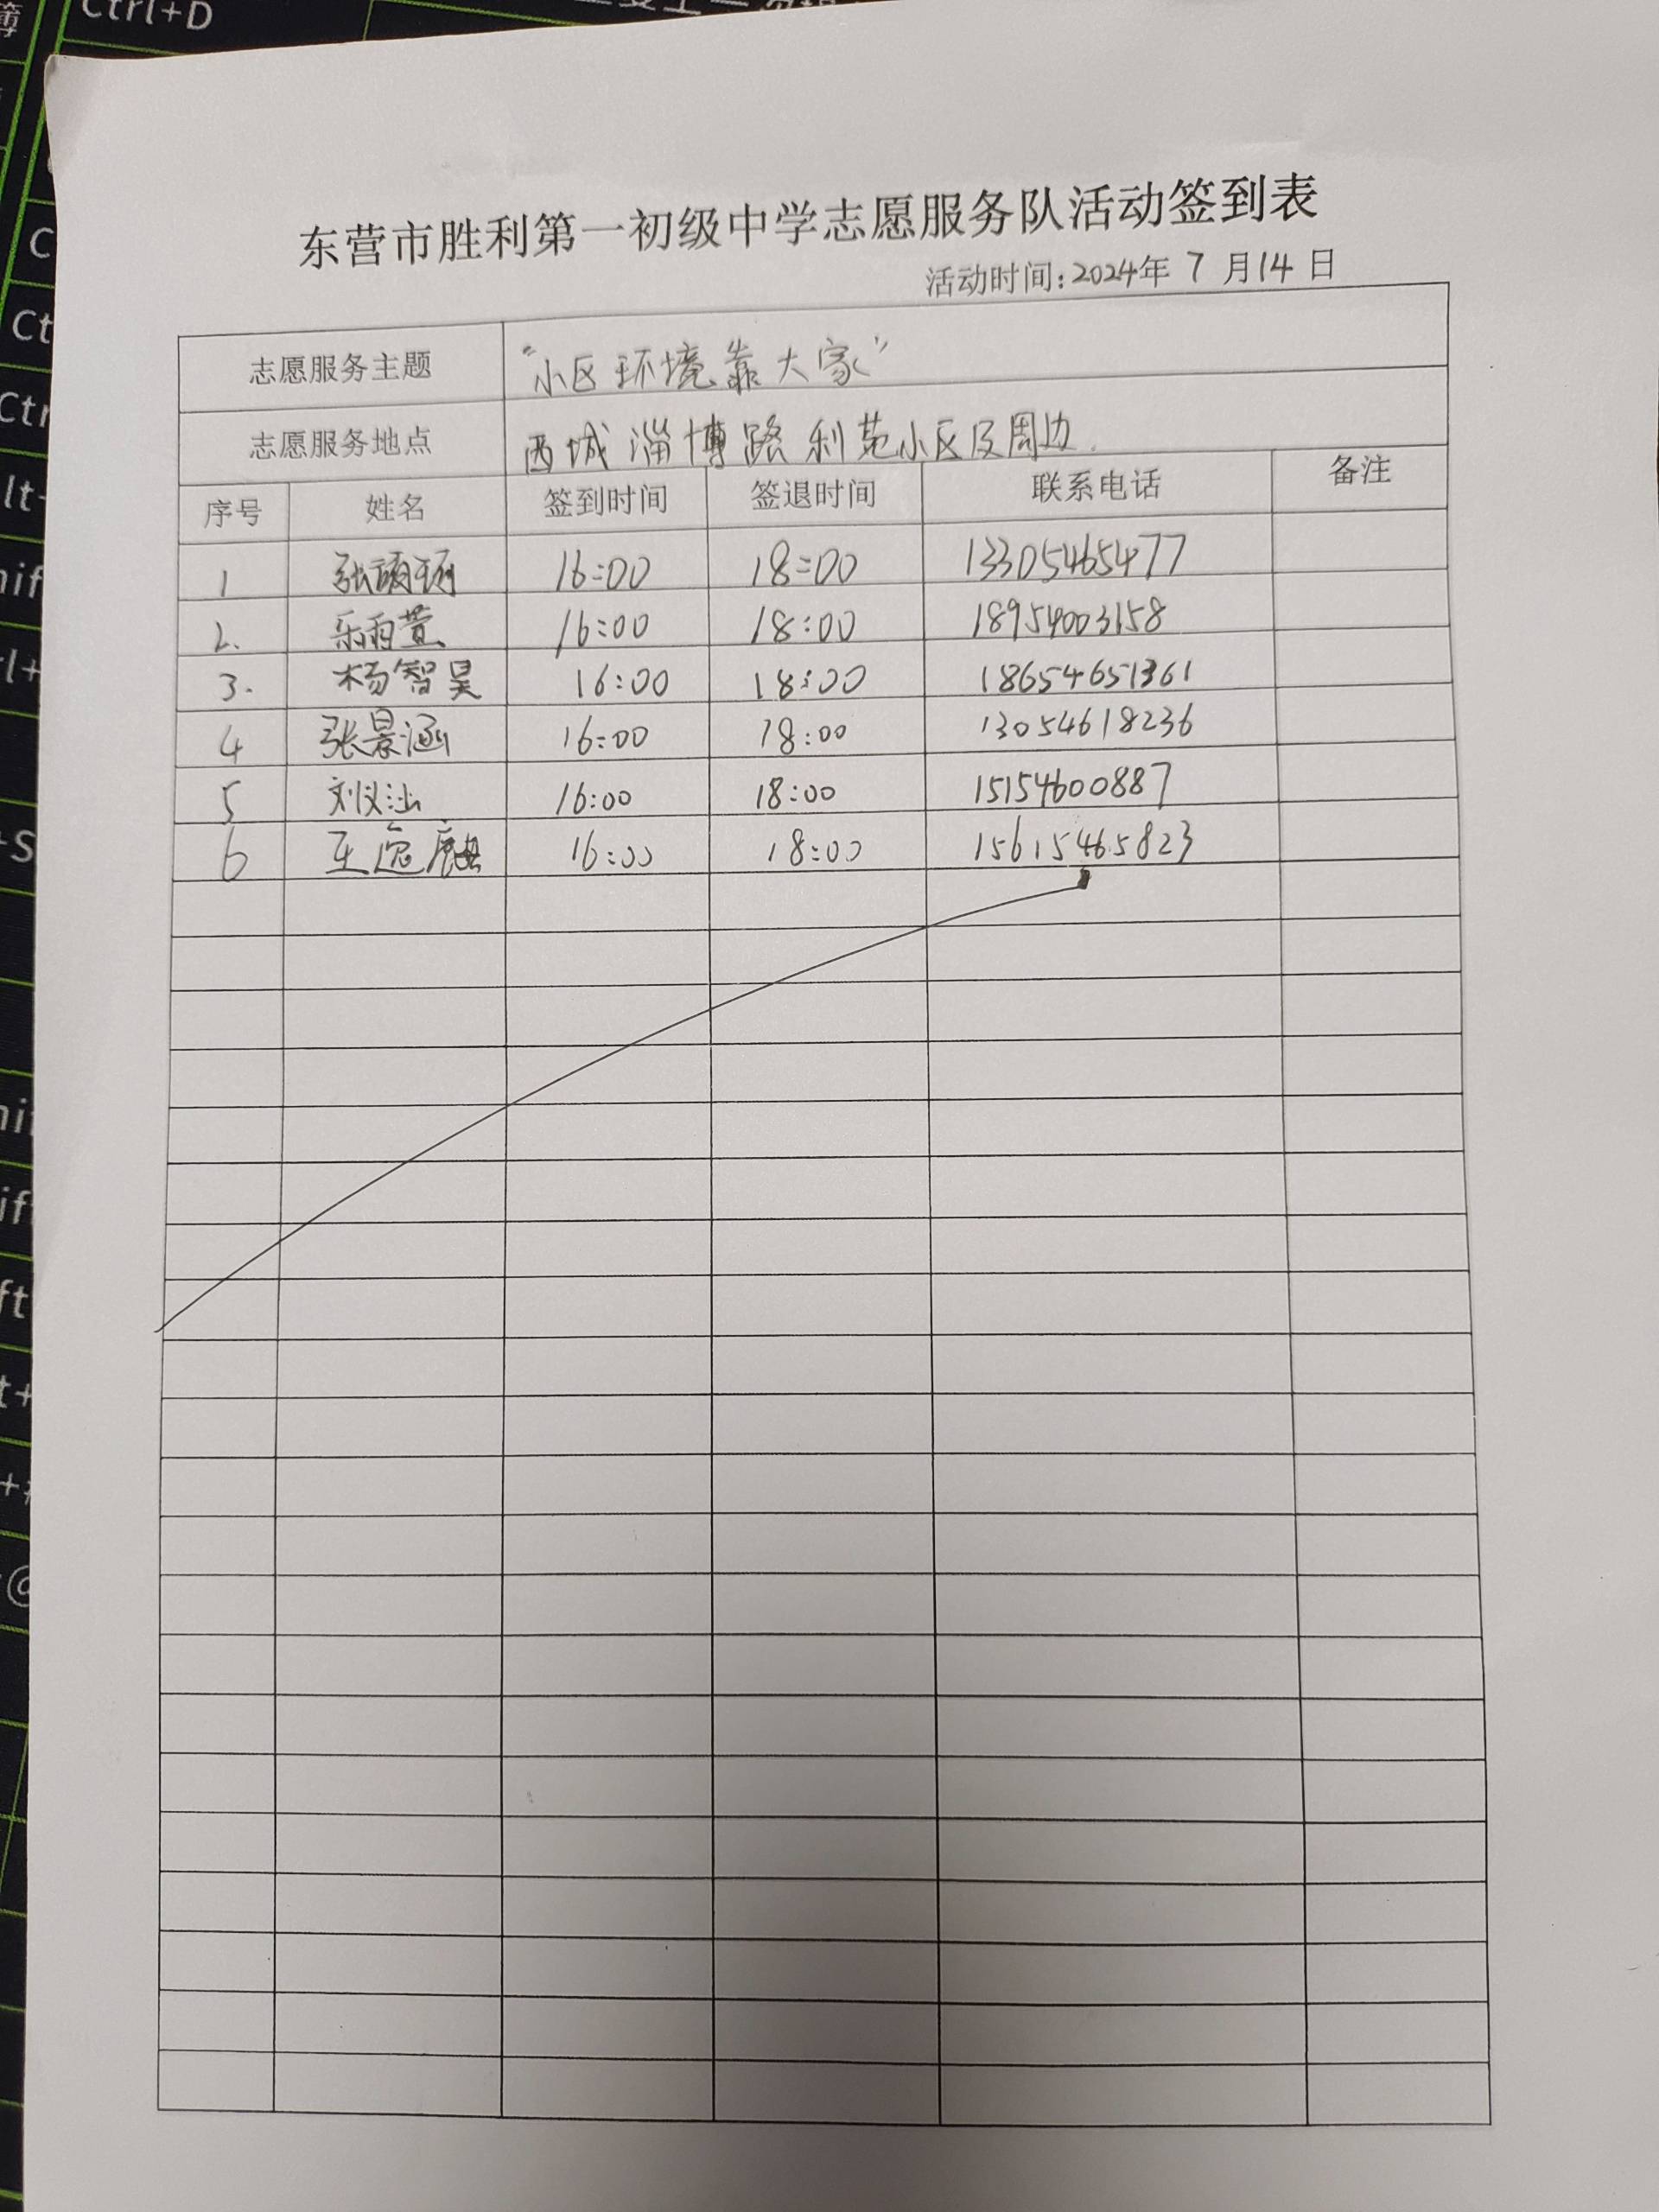 Ctrl+D
东营市胜利第一初级中学志愿服务队活动签到表
活动时间:2024年 7 月14 日
志愿服务主题 "小区环境靠大家"
志愿服务地点 西城淄博路利苑小区及周边.
序号 姓名 签到时间 签退时间 联系电话 备注
1 16:00 18:00 13305465477
2. 乐雨萱 16:00 18:00 18954003158
3. 杨智昊 16:00 18:00 18654651361
4 张景涵 16:00 18:00 13054618236
5 刘议汕 16:00 18:00 15154600887
6 16:00 18:00 15615465823